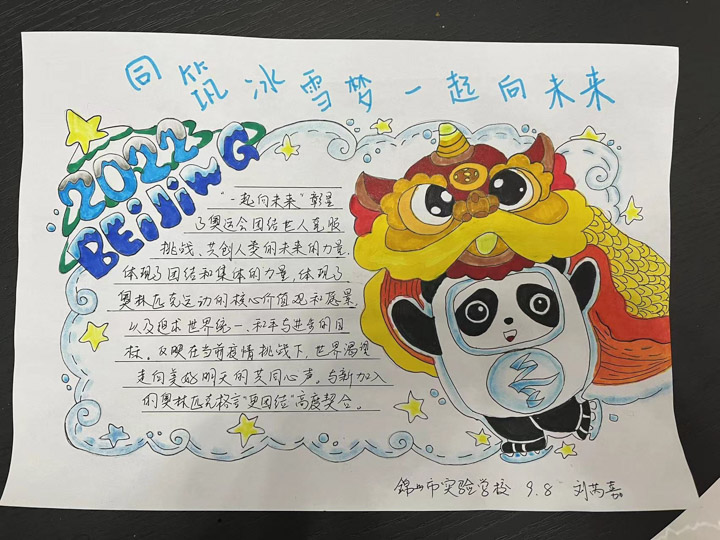 同筑冰雪梦一起向未来
2022
BEiJiNG
"一起向未来"彰显
了奥运会团结世人克服
挑战、共创人类的未来的力量,
体现了团结和集体的力量,体现了
奥林匹克运动的核心价值观和愿景,
以及追求世界统一、和平与进步的目
标。反映在当前疫情挑战下,世界渴望
走向美好明天的共同心声。与新加入
的奥林匹克格言"更团结"高度契合。
锦州市实验学校 9.8 刘芮嘉